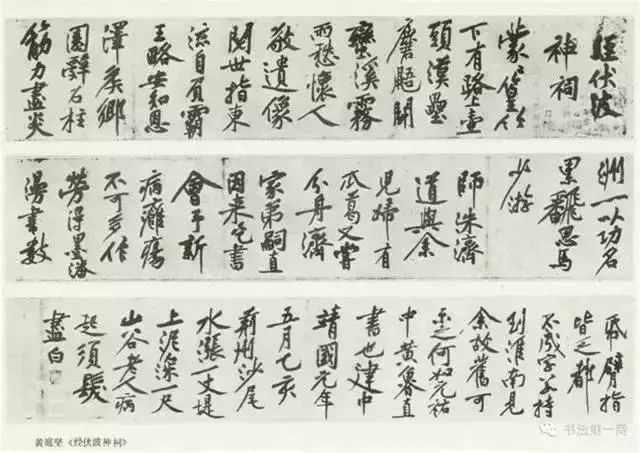 經伏波
神祠
蒙〻篁竹
下有路上壺
頭漢壘
磨鼯鬭
蠻溪霧
雨愁懷人
敬遺像
閱世指東
流自負霸
王略安知恩
澤侯鄉
園辭石柱
筋力盡炎
洲一以功名
累翻思馬
少游
師洙濟
道與余
兒婦有
瓜葛又嘗
分舟濟
家弟嗣直
因來乞書
會予新
病癰瘍
不可多作
勞得墨瀋
漫書數
紙臂指
皆乏都
不成字若持
到淮南見
余故舊可
示之何如元祐
中黃魯直
書也建中
靖國元年
五月乙亥
荊州沙尾
水漲一丈堤
上泥深一尺
山谷老人病
起須髮
盡白
黄庭坚《经伏波神祠》
书法第一